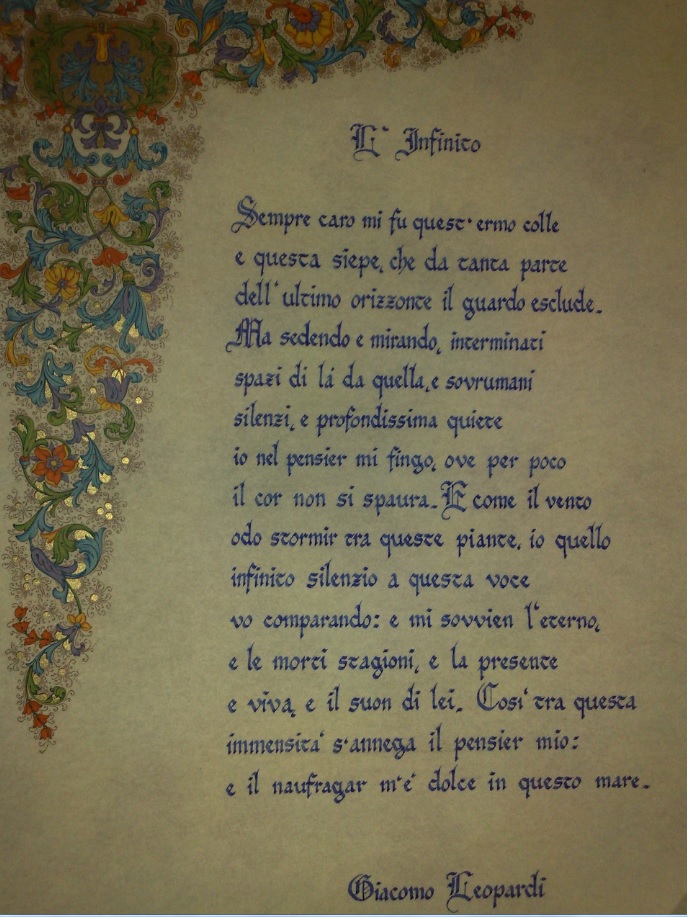 L' Infinito
Sempre caro mi fu quest' ermo colle
e questa siepe, che da tanta parte
dell'ultimo orizzonte il guardo esclude.
Ma sedendo e mirando, interminati
spazi di là da quella, e sovrumani
silenzi, e profondissima quiete
io nel pensier mi fingo, ove per poco
il cor non si spaura. E come il vento
odo stormir tra queste piante, io quello
infinito silenzio a questa voce
vo comparando: e mi sovvien l'eterno,
e le morti stagioni, e la presente
e viva, e il suon di lei. Cosi' tra questa
immensita' s'annega il pensier mio:
e il naufragar m'e' dolce in questo mare.
Giacomo Leopardi